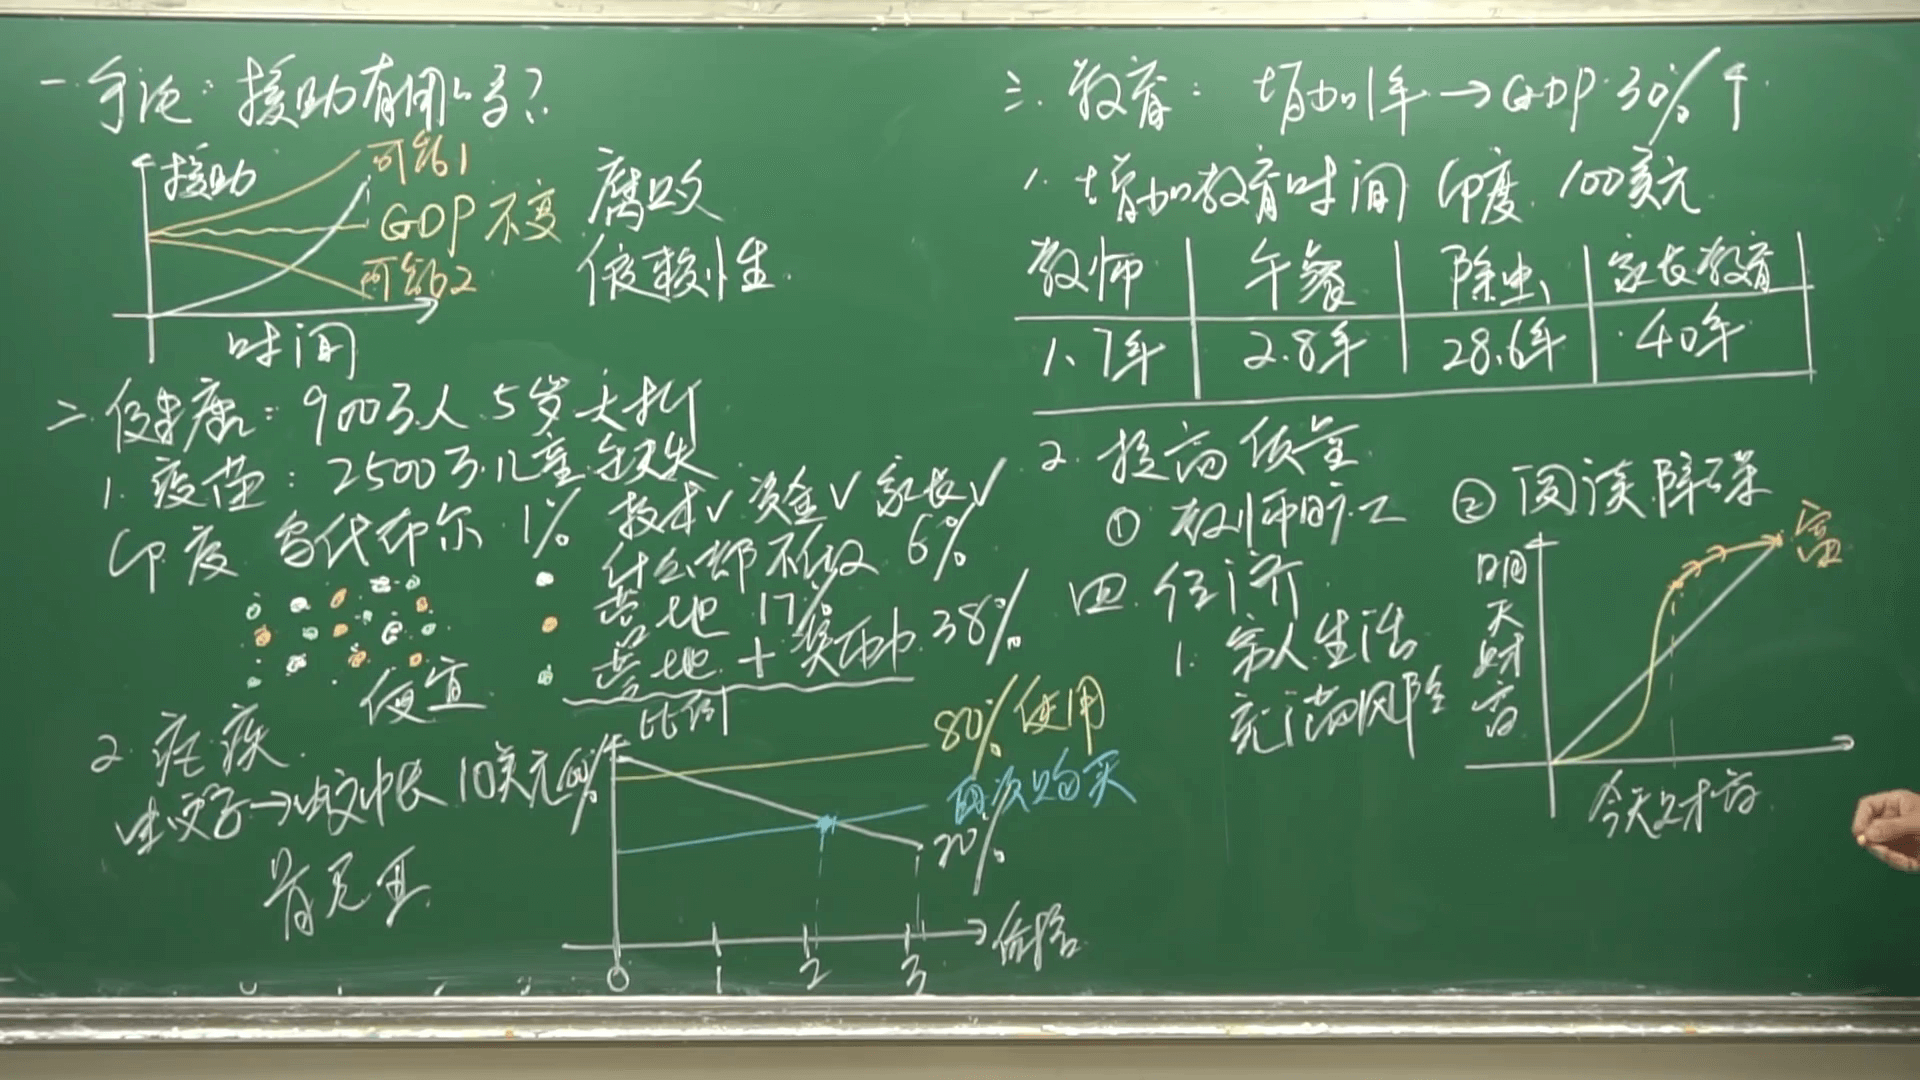 一. 争论: 援助有用吗?
援助
可能1
GDP不变
可能2
时间
腐败
依赖性.
二. 健康: 900万人 5岁夭折
1. 疫苗: 2500万儿童缺失
印度 乌代布尔 1%
技术√ 资金√ 家长√
什么都不做 6%
营地 17%
营地 + 奖币 38%
便宜
2. 疟疾
蚊子→蚊帐 10美元
肯尼亚
比例
80% 使用
再次购买
20%
0 1 2 3
价格
三. 教育: 增加1年→GDP 30%↑
1. 增加教育时间 印度 100美元
教师 午餐 除虫 家长教育
1.7年 2.8年 28.6年 40年
2. 提高质量
① 教师旷工
② 阅读障碍
四. 经济
1. 穷人生活
充满风险
明天财富
富
今天财富